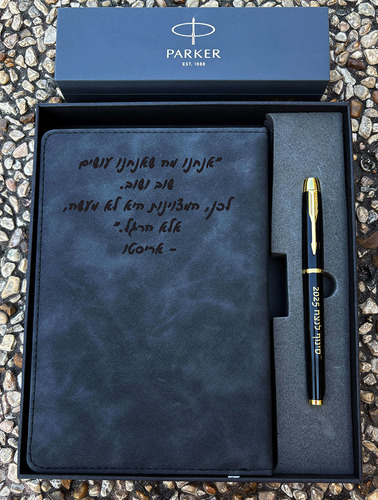 PARKER
EST. 1888
"אנחנו מה שאנחנו עושים
שוב ושוב.
לכן, המצוינות היא לא מעשה,
אלא הרגל."
- אריסטו
סינוף לנצח 2025